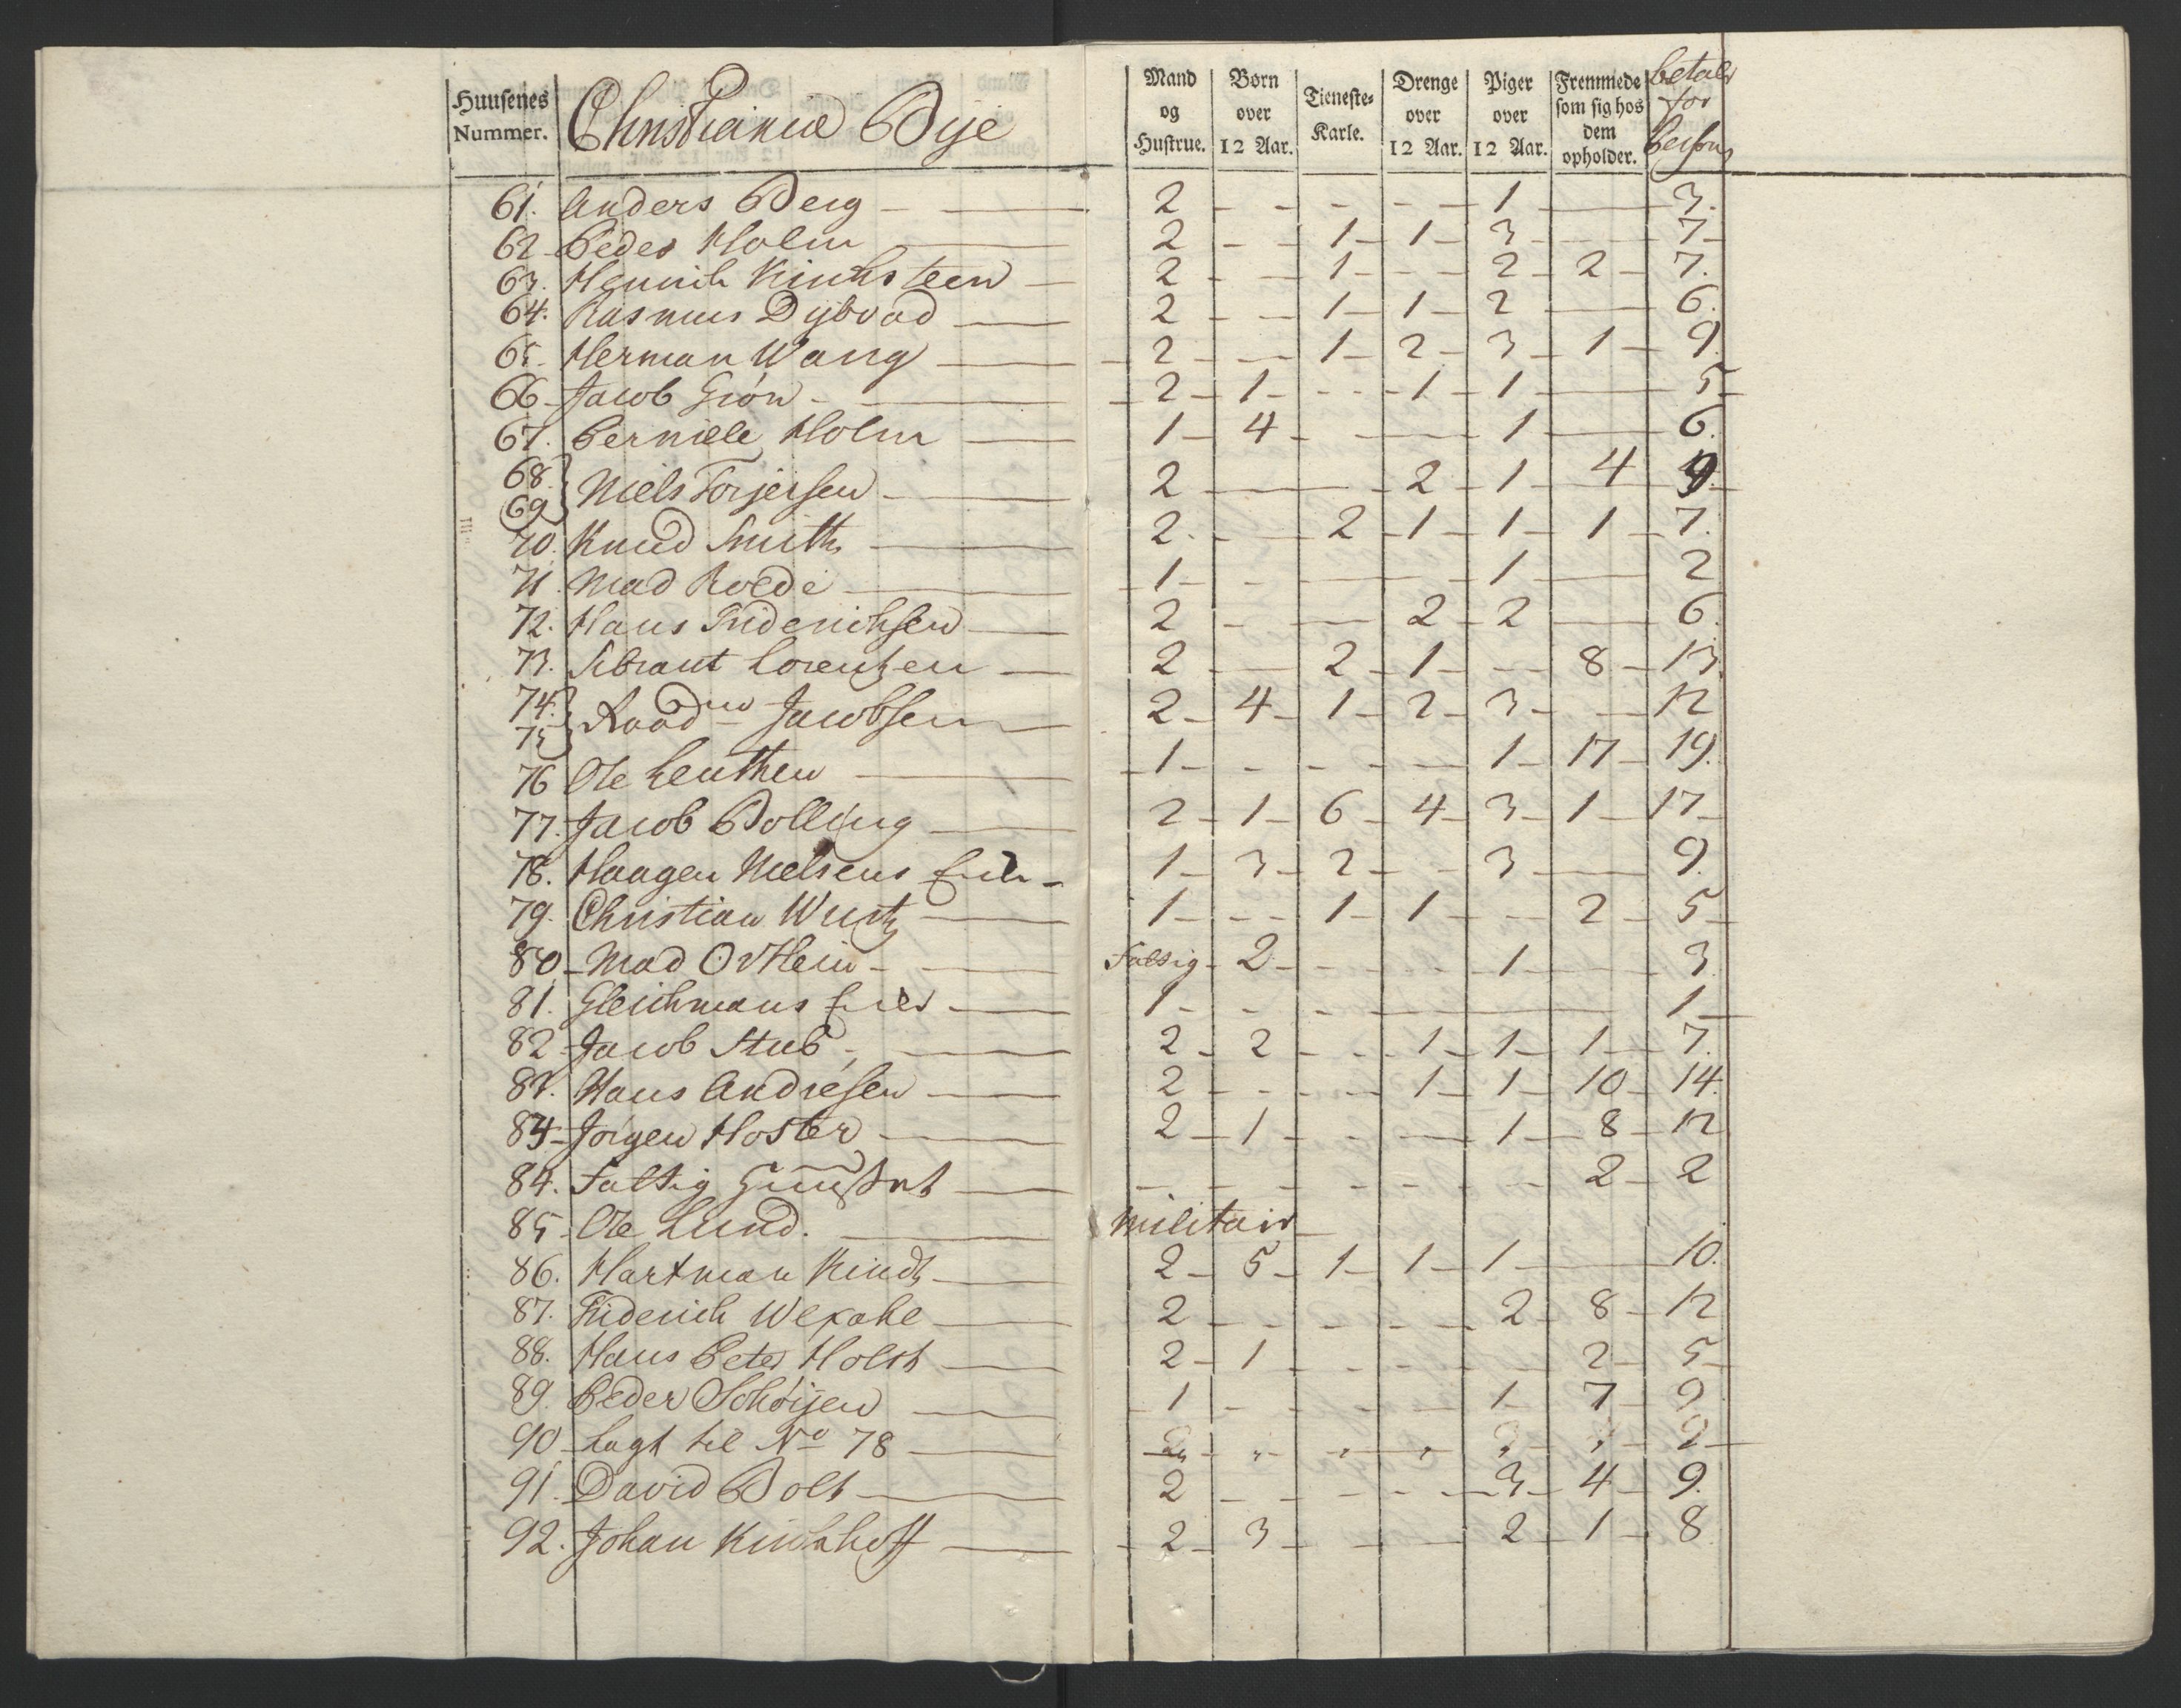 Huusenes Nummer. Christiania Bye Mand og Hustrue. Børn over 12 Aar. Tieneste-Karle. Drenge over 12 Aar. Piger over 12 Aar. Fremmede som sig hos dem opholder. betaler for
61. Anders Berg - — 2 - - - - - 1 — 3.
62 - Peder Holm — 2 - - 1 - 1 - 3 - — 7 -
63. Henrich Kinchsteen — 2 - - 1 - - - 2 - 2 - 7.
64. Rasmus Dybvad — 2 - - 1 - 1 - 2 — 6.
65 - Herman Wang — 2 - — 1 - 2 - 3 - 1 - 9.
66 - Jacob Grøn - — 2 - 1 - - - - 1 - 1 — 5 -
67. Pernille Holm — 1 - 4 - - — 1 — 6.
68. 69 } Niels Torjersen - — 2 — - 2 - 1 - 4 9
70. Knud Smith — 2. - — 2 - 1 - 1 - 1 - 7.
71. Mad Roede — 1 - - - — - 1 — 2
72. Hans Friderichsen — 2 - — 2 - 2 — 6.
73. Sibrant Lorentzen — 2 - — 2 - 1 - — 8 - 13.
74. 75 } Raadm Jacobsen — 2 - 4 - 1 - 2 - 3 - - 12
76 Ole Leuthen — 1 - - - - - 1 - 17 - 19.
77. Jacob Bolling — 2 - 1 - 6 - 4 - 3 - 1 - 17 -
78. Haagen Nielsens Enke - 1 - 3 - 2 - - 3 - — 9.
79. Christian Wurtz — 1 - - - 1 - 1 - - 2 - 5 -
80 - Mad - — Fattig - 2 - - - - 1 — 3.
81. Gleichmans Enke — 1 - - - — 1 -
82 - Jacob Stub - — 2 - 2 - - - 1 - 1 - 1 - 7.
83. Hans Andresen — 2 - - - - 1 - 1 - 10 - 14.
84 - Jørgen Hoster — 2 - 1 - - — 1 - 8 - 12
84. Fattig — - - - - - - 2 - 2
85 - Ole Lund. — Militair —
86. Hartman Kindt — 2 - 5 - 1 - 1 - 1 — 10.
87. Friderich Wexahl — 2 - - - - - 2 - 8 - 12
88. Hans Peter Holst — 2 - 1 - - - - 2 - 5 -
89. Peder Schøijen — 1 - - - - 1 - 7 - 9.
90 - Lagt til No 78 —
91. David Bolt — 2 - - - - - 3 - 4 - 9.
92. Johan Kirchhoff — 2 - 3 - - — 2 - 1 - 8